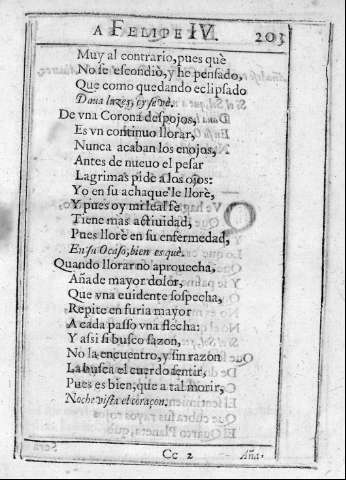 A FELIPE IV. 203
Muy al contrario, pues què
No se escondiò, y he pensado,
Que como quedando eclipsado
Daua luzes, oy se vè.
De vna Corona despojos,
Es vn continuo llorar,
Nunca acaban los enojos,
Antes de nueuo el pesar
Lagrimas pide a los ojos:
Yo en su achaque le llorè,
Y pues oy mi leal fe
Tiene mas actiuidad,
Pues llorè en su enfermedad,
En su Ocaso, bien es què.
Quando llorar no aprouecha,
Añade mayor dolor,
Que vna euidente sospecha,
Repite en furia mayor
A cada passo vna flecha:
Y assi si busco sazon,
No la encuentro, y sin razon
La busca el cuerdo sentir,
Pues es bien, que a tal morir,
Noche vista el coraçon.
Cc 2 Aña-